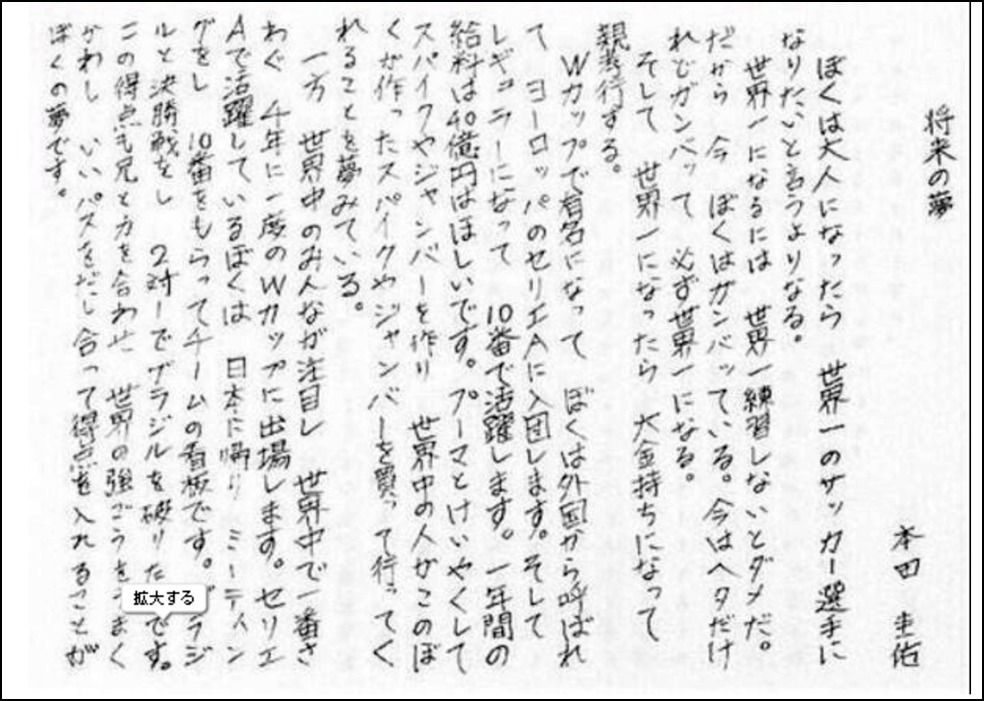 将来の夢
本田 圭佑
ぼくは大人になったら 世界一のサッカー選手に
なりたいと言うよりなる。
世界一になるには 世界一練習しないとダメだ。
だから 今 ぼくはガンバッている。今はヘタだけ
れどガンバッて 必ず世界一になる。
そして 世界一になったら 大金持ちになって
親孝行する。
Wカップで有名になって ぼくは外国から呼ばれ
て ヨーロッパのセリエAに入団します。そして
レギュラーになって 10番で活躍します。一年間の
給料は40億円はほしいです。プーマとけいやくして
スパイクやジャンバーを作り 世界中の人がこのぼ
くが作ったスパイクやジャンバーを買って行ってく
れることを夢みている。
一方 世界中のみんなが注目し 世界中で一番さ
わぐ 4年に一度のWカップに出場します。セリエ
Aで活躍しているぼくは 日本に帰り ミーティン
グをし 10番をもらってチームの看板です。ブラジ
ルと決勝戦をし 2対1でブラジルを破りたいです。
この得点も兄と力を合わせ 世界の強ごうをうまく
かわし いいパスをだし合って得点を入れることが
ぼくの夢です。
拡大する